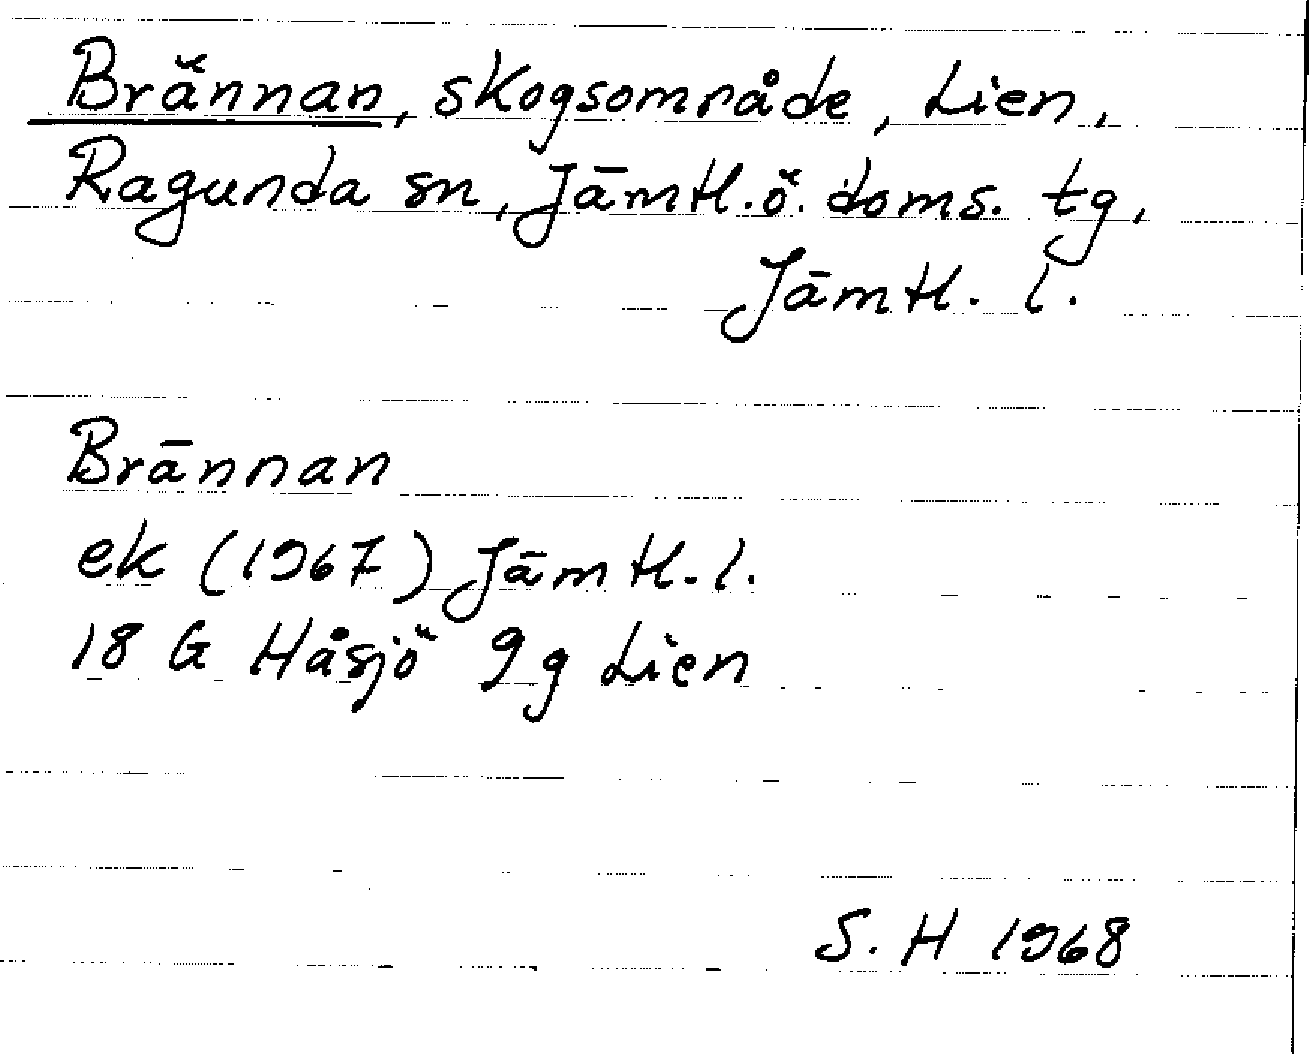 Brännan, skogsområde, Lien,
Ragunda sn, Jämtl. ö. doms. tg,
Jämtl. l.
Brännan
ek (1967) Jämtl. l.
18 G Håsjö 9g Lien
S. H 1968